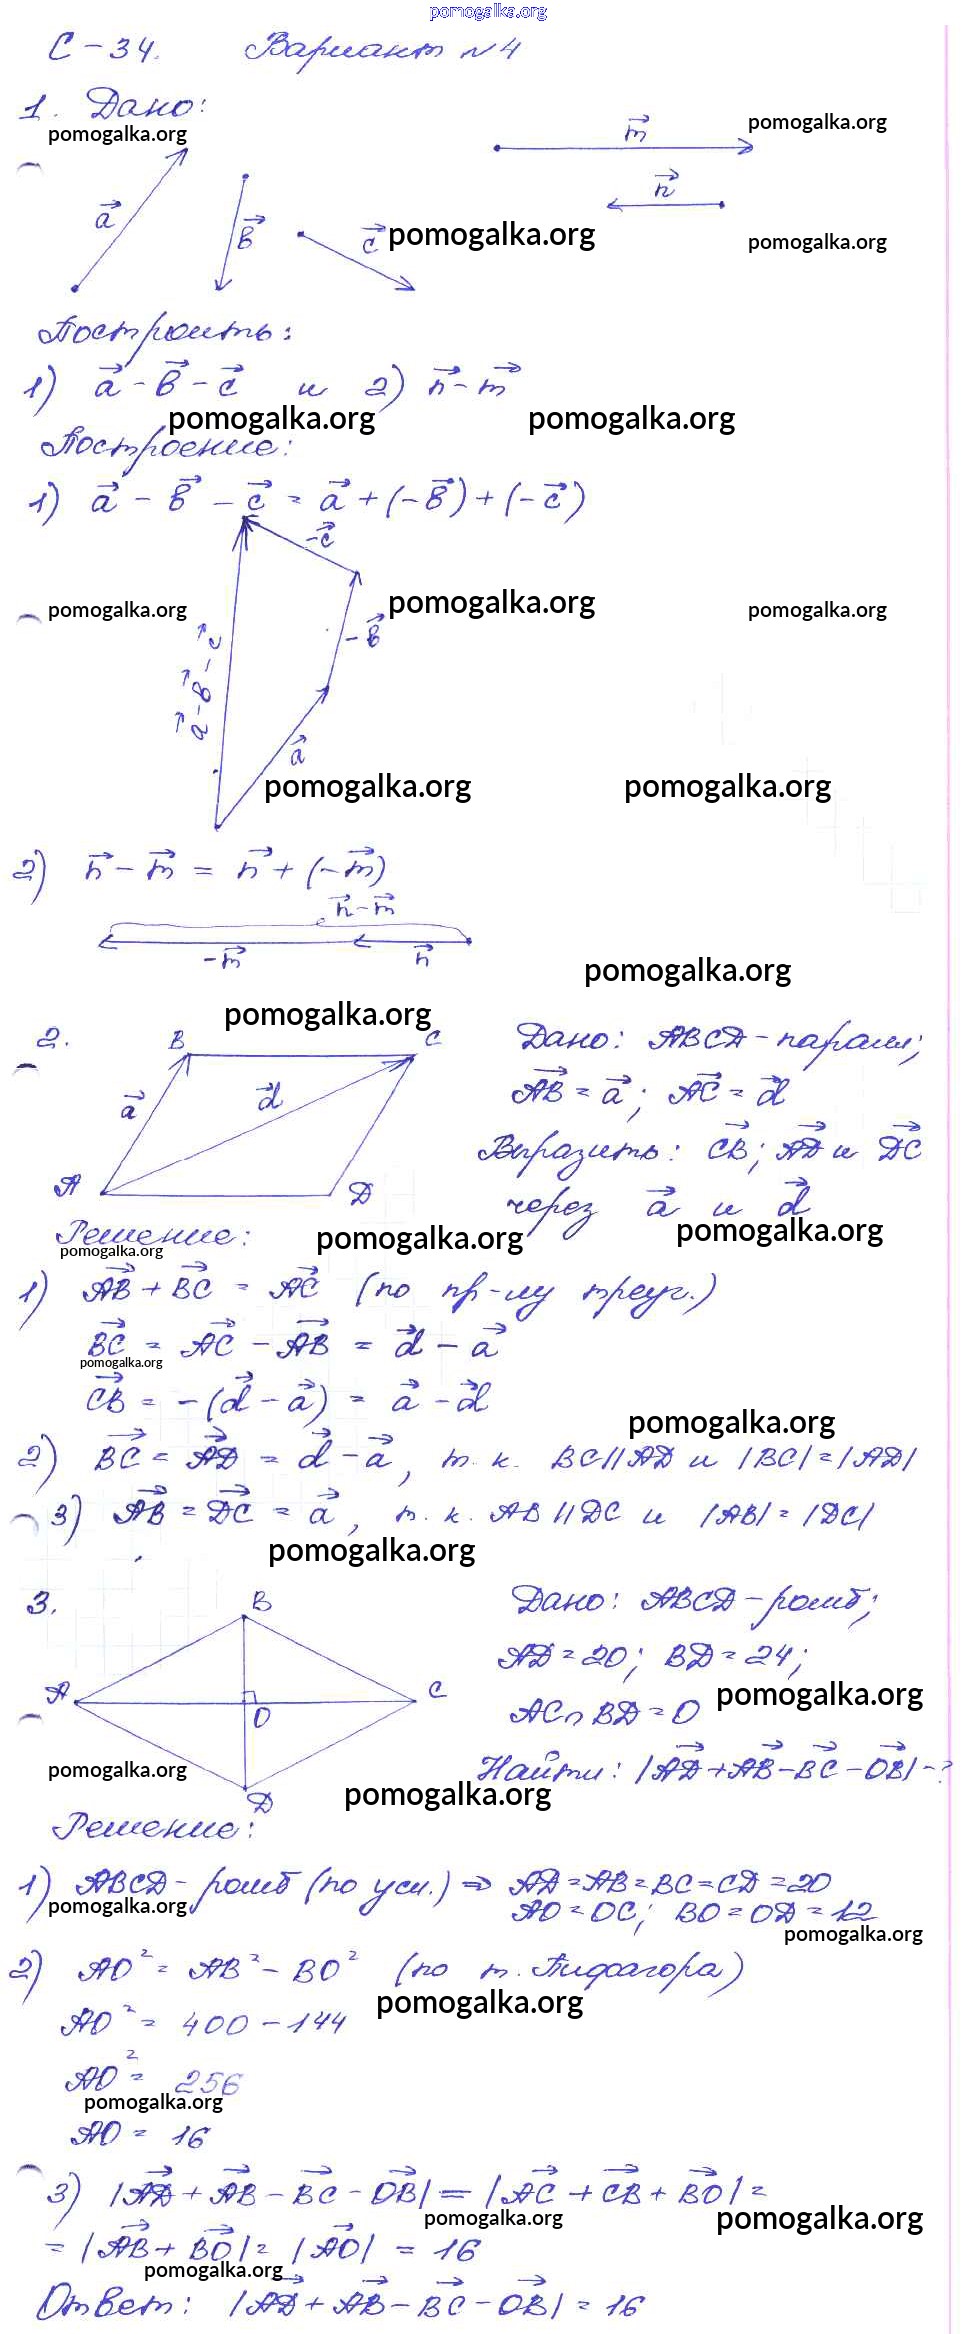 pomogalka.org
С-34. Вариант №4
1. Дано:
pomogalka.org pomogalka.org
a⃗ b⃗ c⃗ m⃗ n⃗
pomogalka.org pomogalka.org
Построить:
1) a⃗ - b⃗ - c⃗ и 2) n⃗ - m⃗
pomogalka.org pomogalka.org
Построение:
1) a⃗ - b⃗ - c⃗ = a⃗ + (-b⃗) + (-c⃗)
-c⃗
pomogalka.org pomogalka.org pomogalka.org
-b⃗
a⃗ - b⃗ - c⃗
a⃗
pomogalka.org pomogalka.org
2) n⃗ - m⃗ = n⃗ + (-m⃗)
n⃗ - m⃗
-m⃗ n⃗
pomogalka.org
pomogalka.org
2. B C
a⃗ d⃗
A D
Дано: ABCD - паралл;
AB⃗ = a⃗; AC⃗ = d⃗
Выразить: CB⃗; AD⃗ и DC⃗
через a⃗ и d⃗
Решение:
pomogalka.org pomogalka.org pomogalka.org
1) AB⃗ + BC⃗ = AC⃗ (по пр-лу треуг.)
BC⃗ = AC⃗ - AB⃗ = d⃗ - a⃗
pomogalka.org
CB⃗ = -(d⃗ - a⃗) = a⃗ - d⃗
pomogalka.org
2) BC⃗ = AD⃗ = d⃗ - a⃗, т.к. BC||AD и |BC|=|AD|
3) AB⃗ = DC⃗ = a⃗, т.к. AB||DC и |AB|=|DC|
pomogalka.org
3. B
A C
O
D
Дано: ABCD - ромб;
AD=20; BD=24;
AC∩BD=O
pomogalka.org
Найти: |AD⃗+AB⃗-BC⃗-OB⃗|-?
pomogalka.org pomogalka.org
Решение:
1) ABCD - ромб (по усл.) ⇒ AD=AB=BC=CD=20
AO=OC; BO=OD=12
pomogalka.org pomogalka.org
2) AO² = AB² - BO² (по т. Пифагора)
pomogalka.org
AO² = 400 - 144
AO² = 256
pomogalka.org
AO = 16
3) |AD⃗ + AB⃗ - BC⃗ - OB⃗| = |AC⃗ + CB⃗ + BO⃗| =
pomogalka.org pomogalka.org
= |AB⃗ + BO⃗| = |AO⃗| = 16
pomogalka.org
Ответ: |AD⃗ + AB⃗ - BC⃗ - OB⃗| = 16